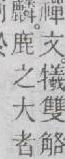 禪文。犧雙觡
麟。鹿之大者